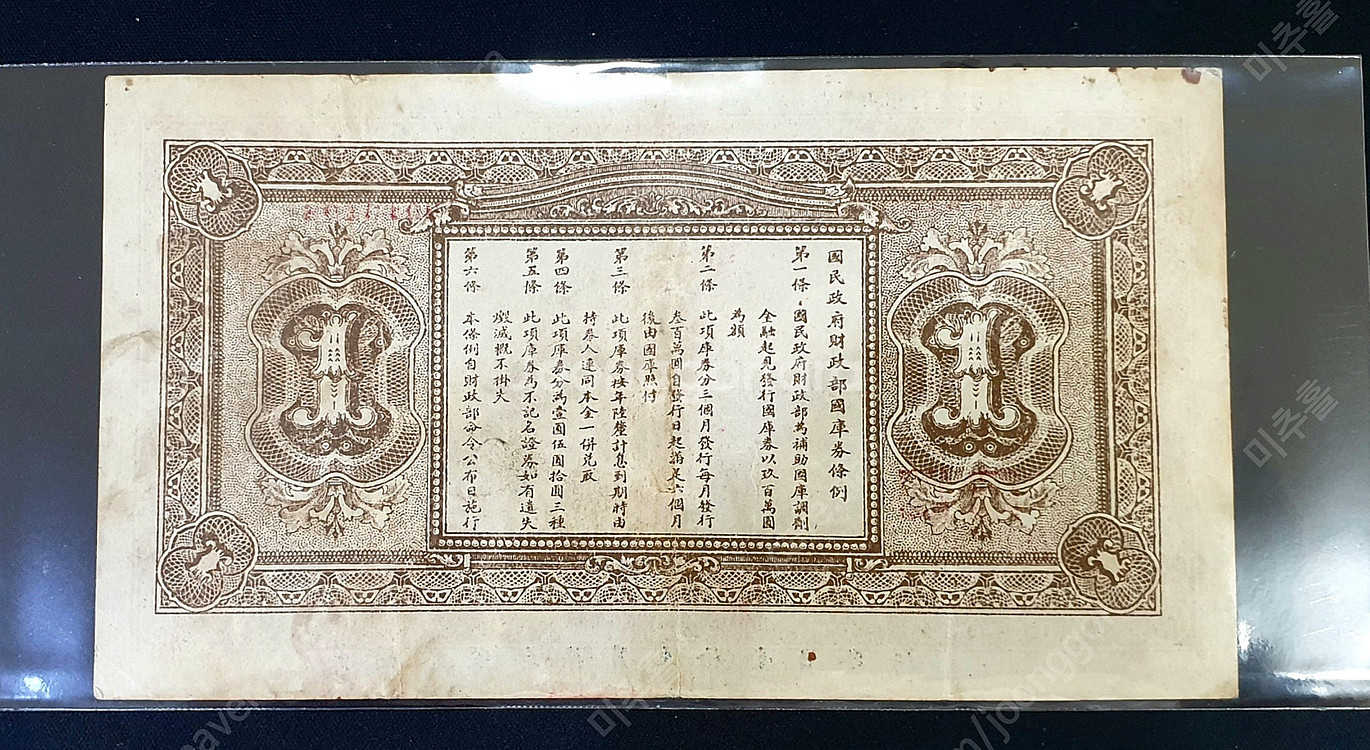 國民政府財政部國庫券條例
第一條 國民政府財政部為補助國庫調劑
金融起見發行國庫券以玖百萬圓
為額
第二條 此項庫券分三個月發行每月發行
叁百萬圓自發行日起諸足六個月
後由國庫照付
第三條 此項庫券按年陸釐計息到期時由
持券人連同本金一併兌取
第四條 此項庫券分為壹圓伍圓拾圓三種
第五條 此項庫券為不記名證券如有遺失
燬滅概不掛失
第六條 本條例自財政部命令公布日施行
1
1
미추홀
미추홀
미추홀